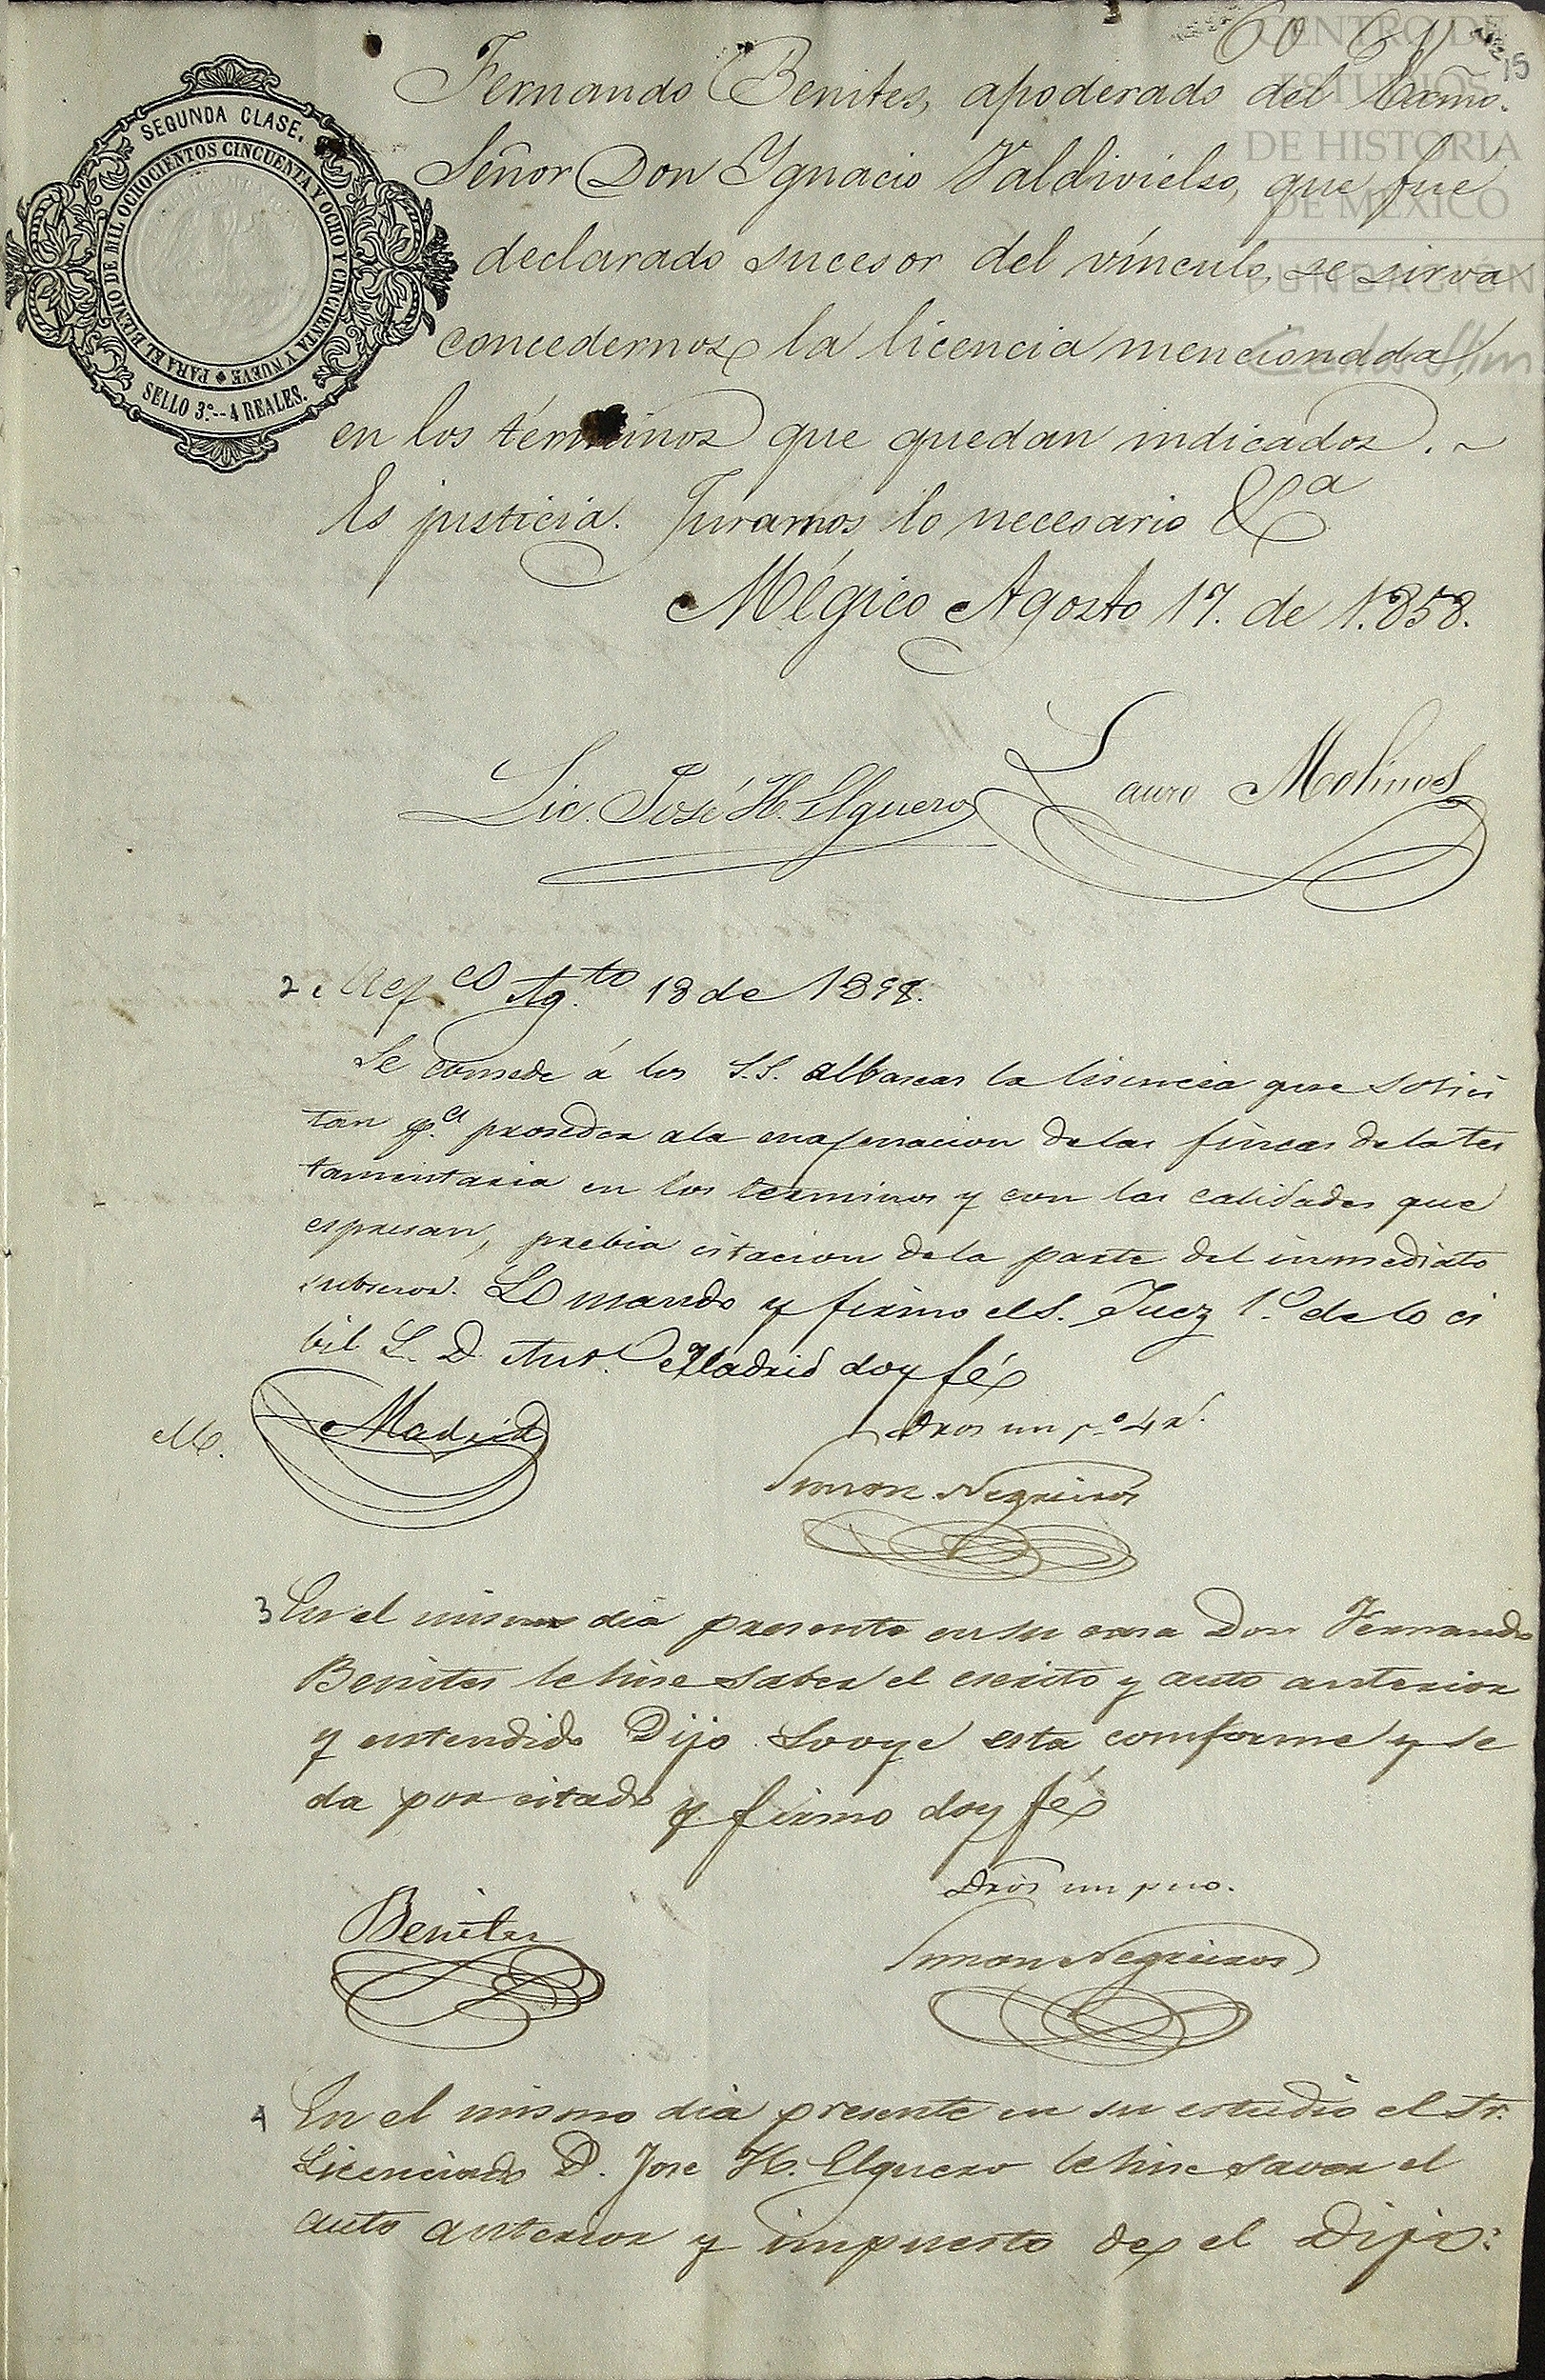 CENTRO DE
ESTUDIOS
DE HISTORIA
DE MÉXICO
FUNDACIÓN
Carlos Slim
15
SEGUNDA CLASE.
PARA EL BIENIO DE MIL OCHOCIENTOS CINCUENTA Y OCHO Y CINCUENTA Y NUEVE
SELLO 3º.--4 REALES.
Fernando Benites, apoderado del Exmo.
Señor Don Ygnacio Valdivielso, que fue
declarado sucesor del vínculo, se sirva
concedernos la licencia mencionada,
en los términos que quedan indicados. ~
Es justicia. Juramos lo necesario &a
Mégico Agosto 17. de 1.858.
Lic. José H. Elguero
Lauro Molinos
2. Mejco Ag.to 18 de 1858.
Se consede á los S.S. albaseas la lisencia que solisi
tan p.a proseder ala enajenacion delas fincas dela tes
tamentaria en los terminos y con las calidades que
espresan, prebia citacion dela parte del inmediato
subsesor. Lo mando y firmo el S. Juez 1.o de lo ci
bil L. D. Ant.o Madrid doy fé
M.
Madrid
Dros un p.o 4 r.
Simon Negreiros
3 En el mismo dia presente en su casa Don Fernando
Benites le hise saber el escrito y auto anterior
y entendido Dijo Lo oye esta comforme y se
da por citado y firmo doy fé
Benites
Dros un peso.
Simon Negreiros
4 En el mismo dia presente en su estudio el Sr.
Licenciado D. Jose H. Elguero le hise saver el
auto anterior y impuesto de el Dijo: